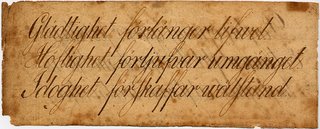 Gladtighet förlänger lifwet.
Höflighet förljufvar umgänget
Idoghet förskaffar wälstånd.